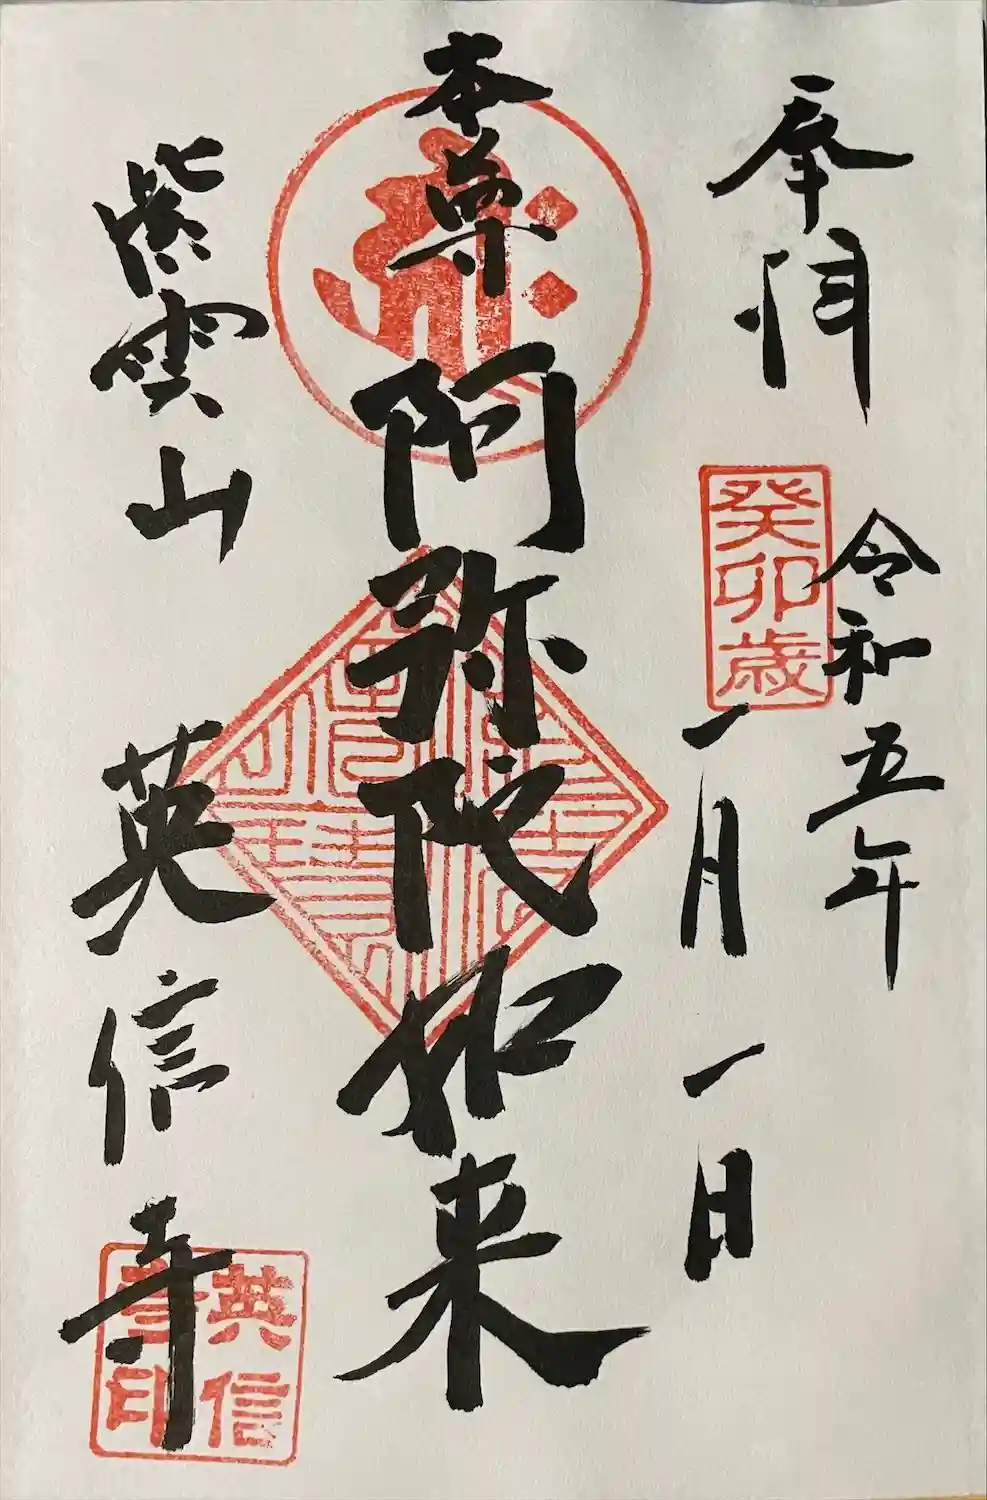 奉拝
令和五年
癸卯歳
一月一日
本尊
阿弥陀如来
紫雲山
英信寺
英信寺印